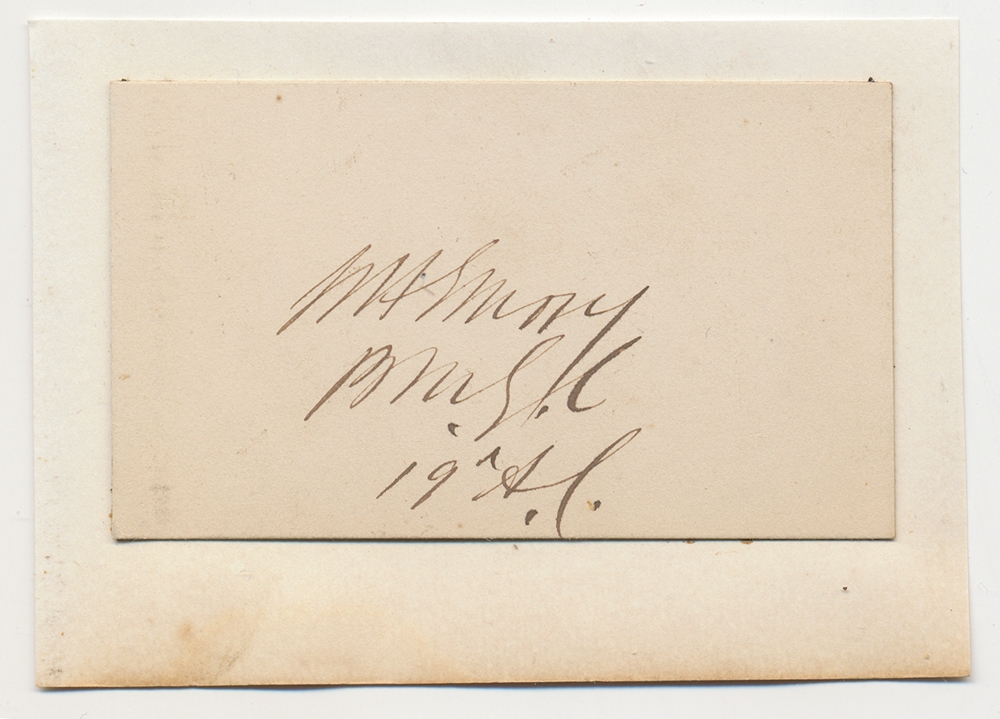 WH Emory
B.M.G.C
19th A.C.